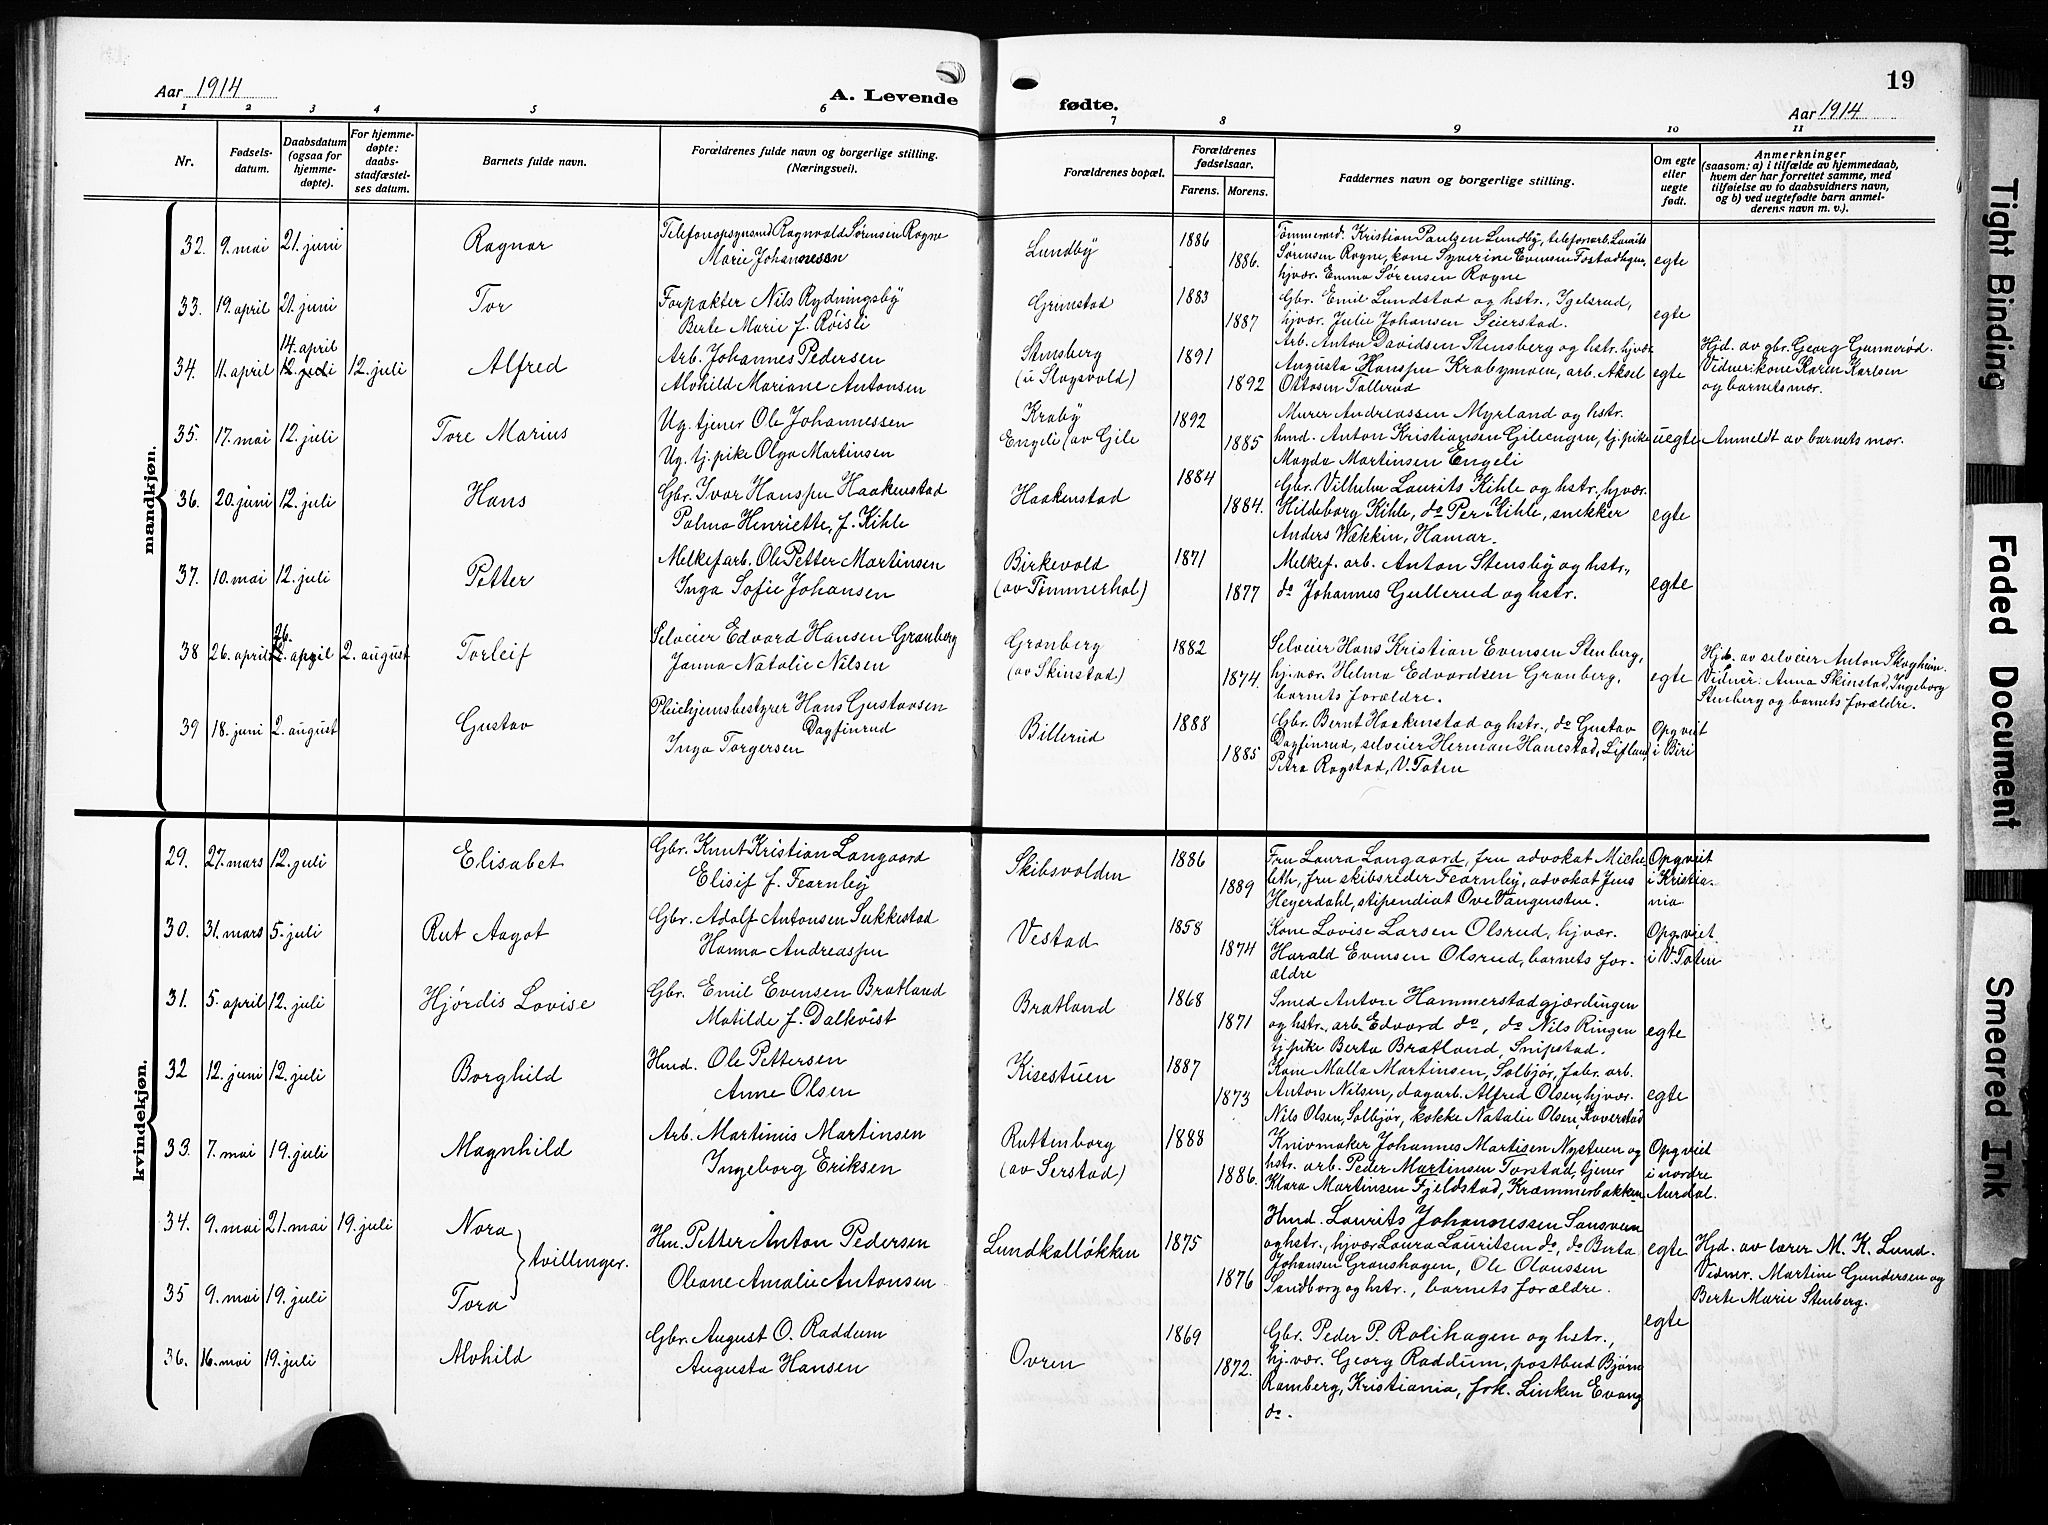 Aar 1914
A. Levende
fødte.
19
Aar 1914
1 2 3 4 5 6 7 8 9 10 11
Nr.
Fødsels-
datum.
Daabsdatum
(ogsaa for
hjemme-
døpte).
For hjemme-
døpte:
daabs-
stadfæstel-
ses datum.
Barnets fulde navn.
Forældrenes fulde navn og borgerlige stilling.
(Næringsvei).
Forældrenes bopæl.
Forældrenes
fødselsaar.
Farens. Morens.
Faddernes navn og borgerlige stilling.
Om egte
eller
uegte
født.
Anmerkninger
(saasom: a) i tilfælde av hjemmedaab,
hvem der har forrettet samme, med
tilføielse av to daabsvidners navn,
og b) ved uegtefødte barn anmel-
derens navn m. v.).
mandkjøn.
32. 9. mai 21. juni Ragnar
Telefonopsynsmd Ragnvald Sørensen Rogne
Marie Johannessen
Lundby
1886
1886.
Tømmermd. Kristian Paulsen Lundby, telefonarb. Laurits
Sørensen Rogne, kone Syverine Evensen
hjvær. Emma Sørensen Rogne
egte
33. 19. april 21. juni Tor
Forpakter Nils Rydningsby
Berte Marie f. Røisli
Grimstad
1883
1887
Gbr. Emil Lundstad og hstr., Igelsrud,
hjvær. Julie Johansen Seierstad.
egte
34. 11. april 14. april 12. juli 12. juli Alfred
Arb. Johannes Pedersen
Alvhild Mariane Antonsen
Stensberg
(u Skogsvold)
1891
1892
Arb. Anton Davidsen Stensberg og hstr. hjvær
Augusta Hanssen Krabymoen, arb. Aksel
Ottosen Tallerud
egte
Hjd. av gbr. Georg Gunnerød.
Vidner: kone Karen Karlsen
og barnets mor.
35. 17. mai 12. juli Tore Marius
Ug. tjener Ole Johannessen
Ug. tj. pike Olga Martinsen
Kraby
Engeli (av Gile
1892
1885
Murer Andreassen Myrland og hstr.
hmd. Anton Kristiansen Gileengen, tj. pike
Magda Martinsen Engeli
uegte
Anmeldt av barnets mor.
36. 20. juni 12. juli Hans
Gbr. Ivar Hanssen Haakenstad
Palma Henriette, f. Kihle
Haakenstad
1884
1884.
Gbr. Vilhelm Laurits Kihle og hstr., hjvær.
Hildeborg Kihle, do Per Kihle, snekker
Anders Wækkin, Hamar.
egte
37. 10. mai 12. juli Petter
Melkefarb. Ole Petter Martinsen
Inga Sofie Johansen
Birkevold
(av Tømmerhol)
1871
1877
Melkef. arb. Anton Stensby og hstr.,
do Johannes Gullerud og hstr.
egte
38 26. april 26. april 2. august Torleif
Selveier Edvard Hansen Granberg
Janna Natalie Nilsen
Granberg
(av Skinstad)
1882
1874.
Selveier Hans Kristian Evensen Stenberg,
hj. vær. Helma Edvardsen Granberg,
barnets forældre.
egte
Hjd. av selveier Anton Skogheim.
Vidner: Anna Skinstad, Ingeborg
Stenberg og barnets forældre.
39 18. juni 2. august Gustav
Pleiehjemsbestyrer Hans Gustavsen
Dagfinrud
Inga Torgersen
Billerud
1888
1885
Gbr. Bernt Haakenstad og hstr., do Gustav
Dagfinrud, selveier Herman Hanestad, Lifland,
Petra Rogstad, V. Toten
Opg. viet
i Biri
kvindekjøn.
29. 27. mars 12. juli Elisabet
Gbr. Knut Kristian Langaard
Elisif f. Fearnley
Skibsvolden
1886
1889
Fru Laura Langaard, fru advokat Miche
leth, fru skibsreder Fearnley, advokat Jens
Heyerdahl, stipendiat Ove Vangensten.
Opg viet
i Kristia-
nia
30. 31. mars 5. juli Rut Aagot
Gbr. Adolf Antonsen Sukkestad
Hanna Andreassen
Vestad
1858
1874
Kone Lovise Larsen Olsrud, hjvær.
Harald Evensen Olsrud, barnets for-
ældre
Opg. viet
i V. Toten
31. 5. april 12. juli Hjørdis Lovise
Gbr. Emil Evensen Bratland
Matilde f. Dalkvist
Bratland
1868
1871
Smed Anton Hammerstadgjærdingen
og hstr., arb. Edvard do, do Nils Ringen
tj. pike Berta Bratland, Snipstad.
egte
32 12. juni 12. juli Borghild
Hmd. Ole Pettersen
Anne Olsen
Kisestuen
1887
1873
Kone Malla Martinsen, Solbjør, fabr. arb.
Anton Nilsen, dagarb. Alfred Olsen, hjvær.
Nils Olsen, Solbjør, kokke Natalie Olsen,
egte
33. 7. mai 19. juli Magnhild
Arb. Martinus Martinsen
Ingeborg Eriksen
Ruttenborg
(av Serstad)
1888
1886.
Knivmaker Johannes Martisen Nystuen og
hstr. arb. Peder Martinsen Torstad, tjener
Klara Martinsen Fjeldstad, Kræmmerbakken
Opg viet
i nordre
Aurdal.
34. 9. mai 21. mai 19. juli Nora
tvillinger.
Hm. Petter Anton Pedersen
Oleane Amalie Antonsen
Lundkalløkken
1875
1876
Hmd. Laurits Johannessen Sansveen
og hstr., hjvær Laura Lauritsen do, do Berta
Johansen Granshagen, Ole Olaussen
Sandborg og hstr., barnets forældre.
egte
Hjd. av lærer M. K. Lund.
Vidner. Martine Gundersen og
Berte Marie Stenberg.
35 9. mai 19. juli Tora
egte
36. 16. mai 19. juli Alvhild
Gbr. August O. Raddum
Augusta Hansen
Ovren
1869
1872.
Gbr. Peder P. Rolihagen og hstr.,
hj. vær. Georg Raddum, postbud Bjørn
Ramberg, Kristiania, frk. Linken Evang
do.
Tight Binding
Faded Document
Smeared Ink